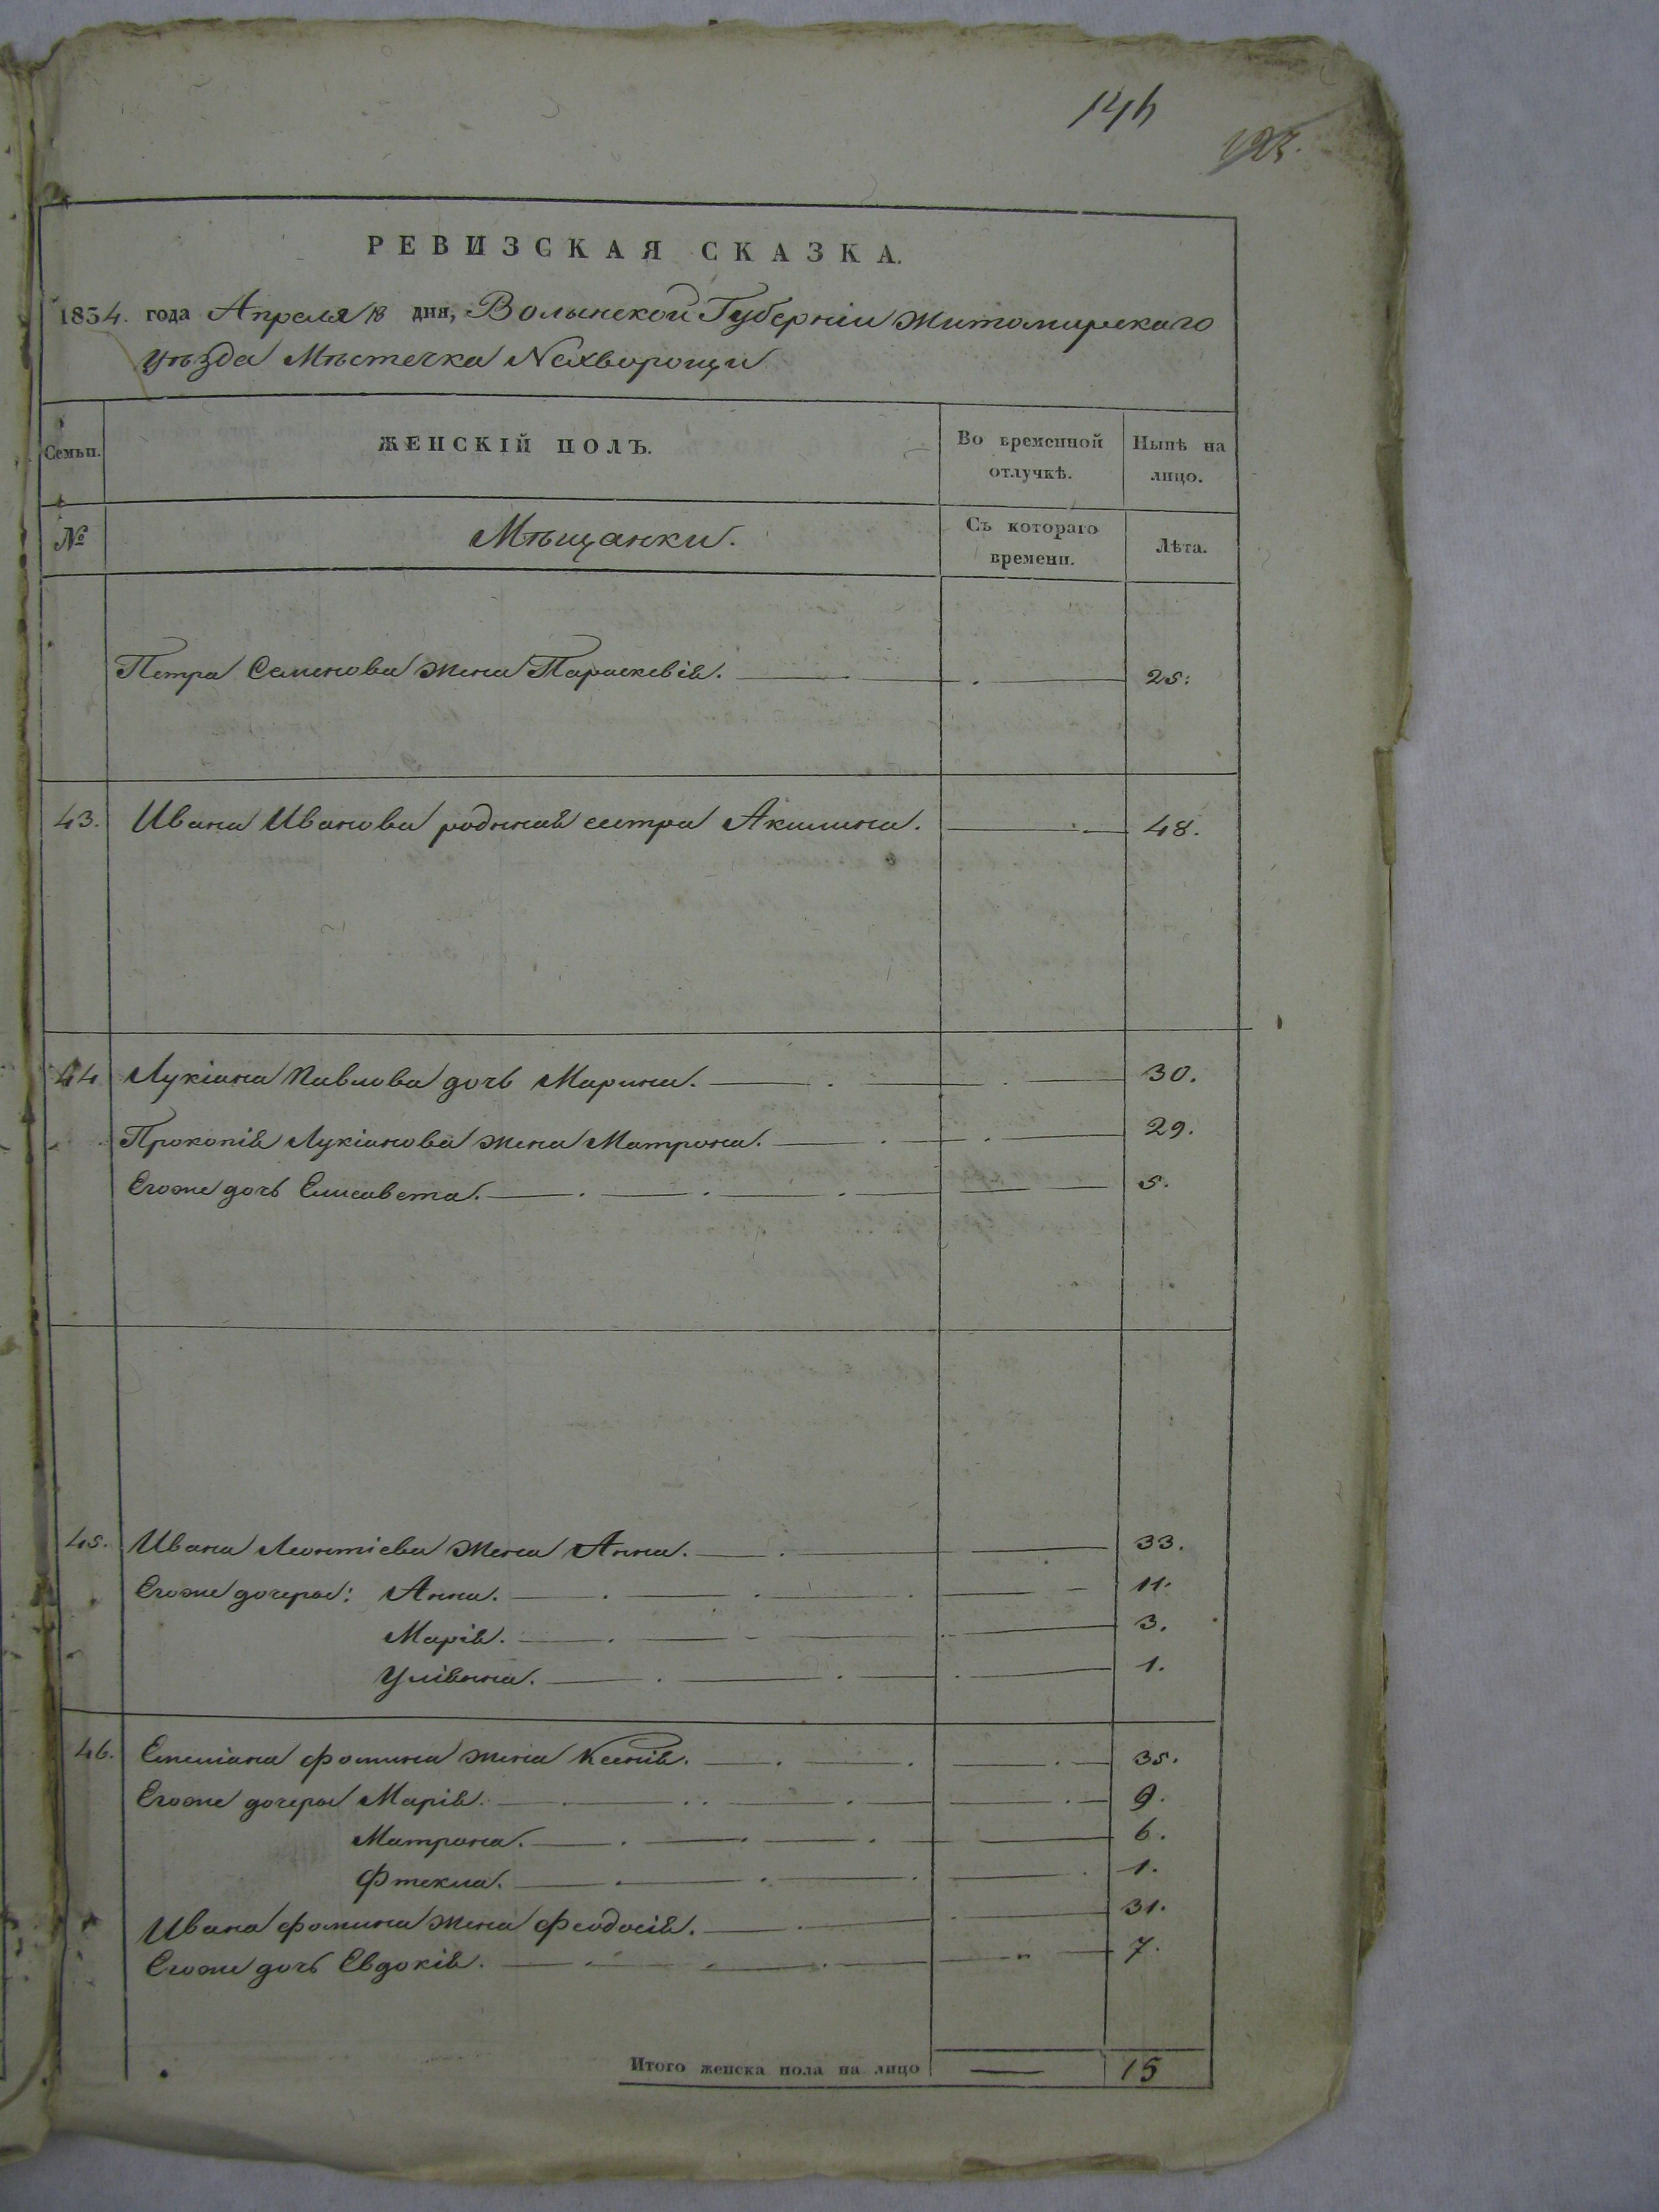 146
123.
РЕВИЗСКАЯ СКАЗКА.
1834. года Апреля 18 дня, Волынской Губерніи Житомирскаго
уѣзда Мѣстечка Нехворощи
Семьи.
ЖЕНСКІЙ ПОЛЪ.
Во временной отлучкѣ.
Нынѣ на лицо.
№
Мѣщанки.
Съ котораго времени.
Лѣта.
Петра Семенова жена Параскевія. 25.
43. Ивана Иванова родная сестра Акилина. 48.
44 Лукіана Павлова дочь Марина. 30.
Прокопія Лукіанова жена Матрона. 29.
Егоже дочь Елисавета. 5.
45. Ивана Леонтіева жена Анна. 33.
Егоже дочеры: Анна. 11.
Марія. 3.
Уліянна. 1.
46. Емеліана Фомина жена Ксенія. 35.
Егоже дочеры Марія. 9.
Матрона. 6.
Фтекла. 1.
Ивана Фомина жена Феодосія. 31.
Егоже дочь Евдокія. 7.
Итого женска пола на лицо — 15